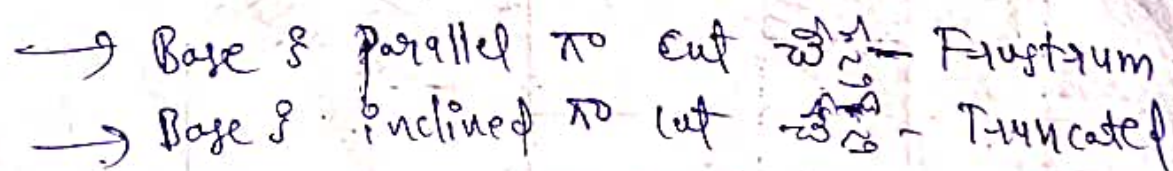 → Base కి parallel గా cut చేస్తే - Frustrum
→ Base కి inclined గా cut చేస్తే - Truncated